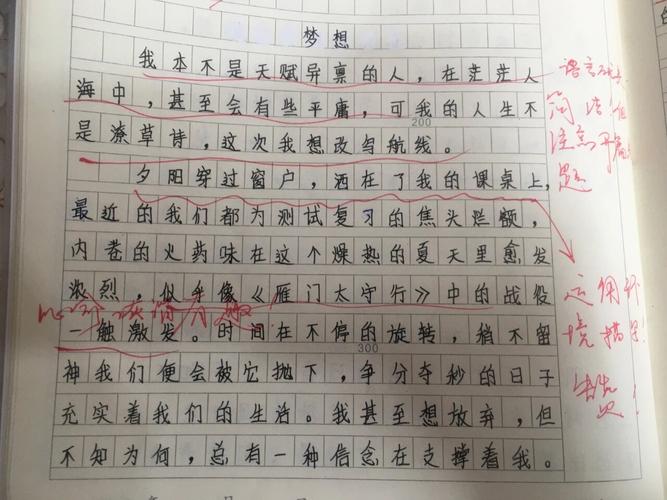 梦想
我本不是天赋异禀的人，在茫茫人
海中，甚至会有些平庸，可我的人生不
200
是潦草诗，这次我想改写航线。
夕阳穿过窗户，洒在了我的课桌上，
最近的我们都为测试复习的焦头烂额，
内卷的火药味在这个燥热的夏天里愈发
浓烈，似乎像《雁门太守行》中的战役
一触激发。时间在不停的旋转，稍不留
300
神我们便会被它抛下，争分夺秒的日子
充实着我们的生活。我甚至想放弃，但
不知为何，总有一种信念在支撑着我。
语言
简洁
题
运用环
境描写